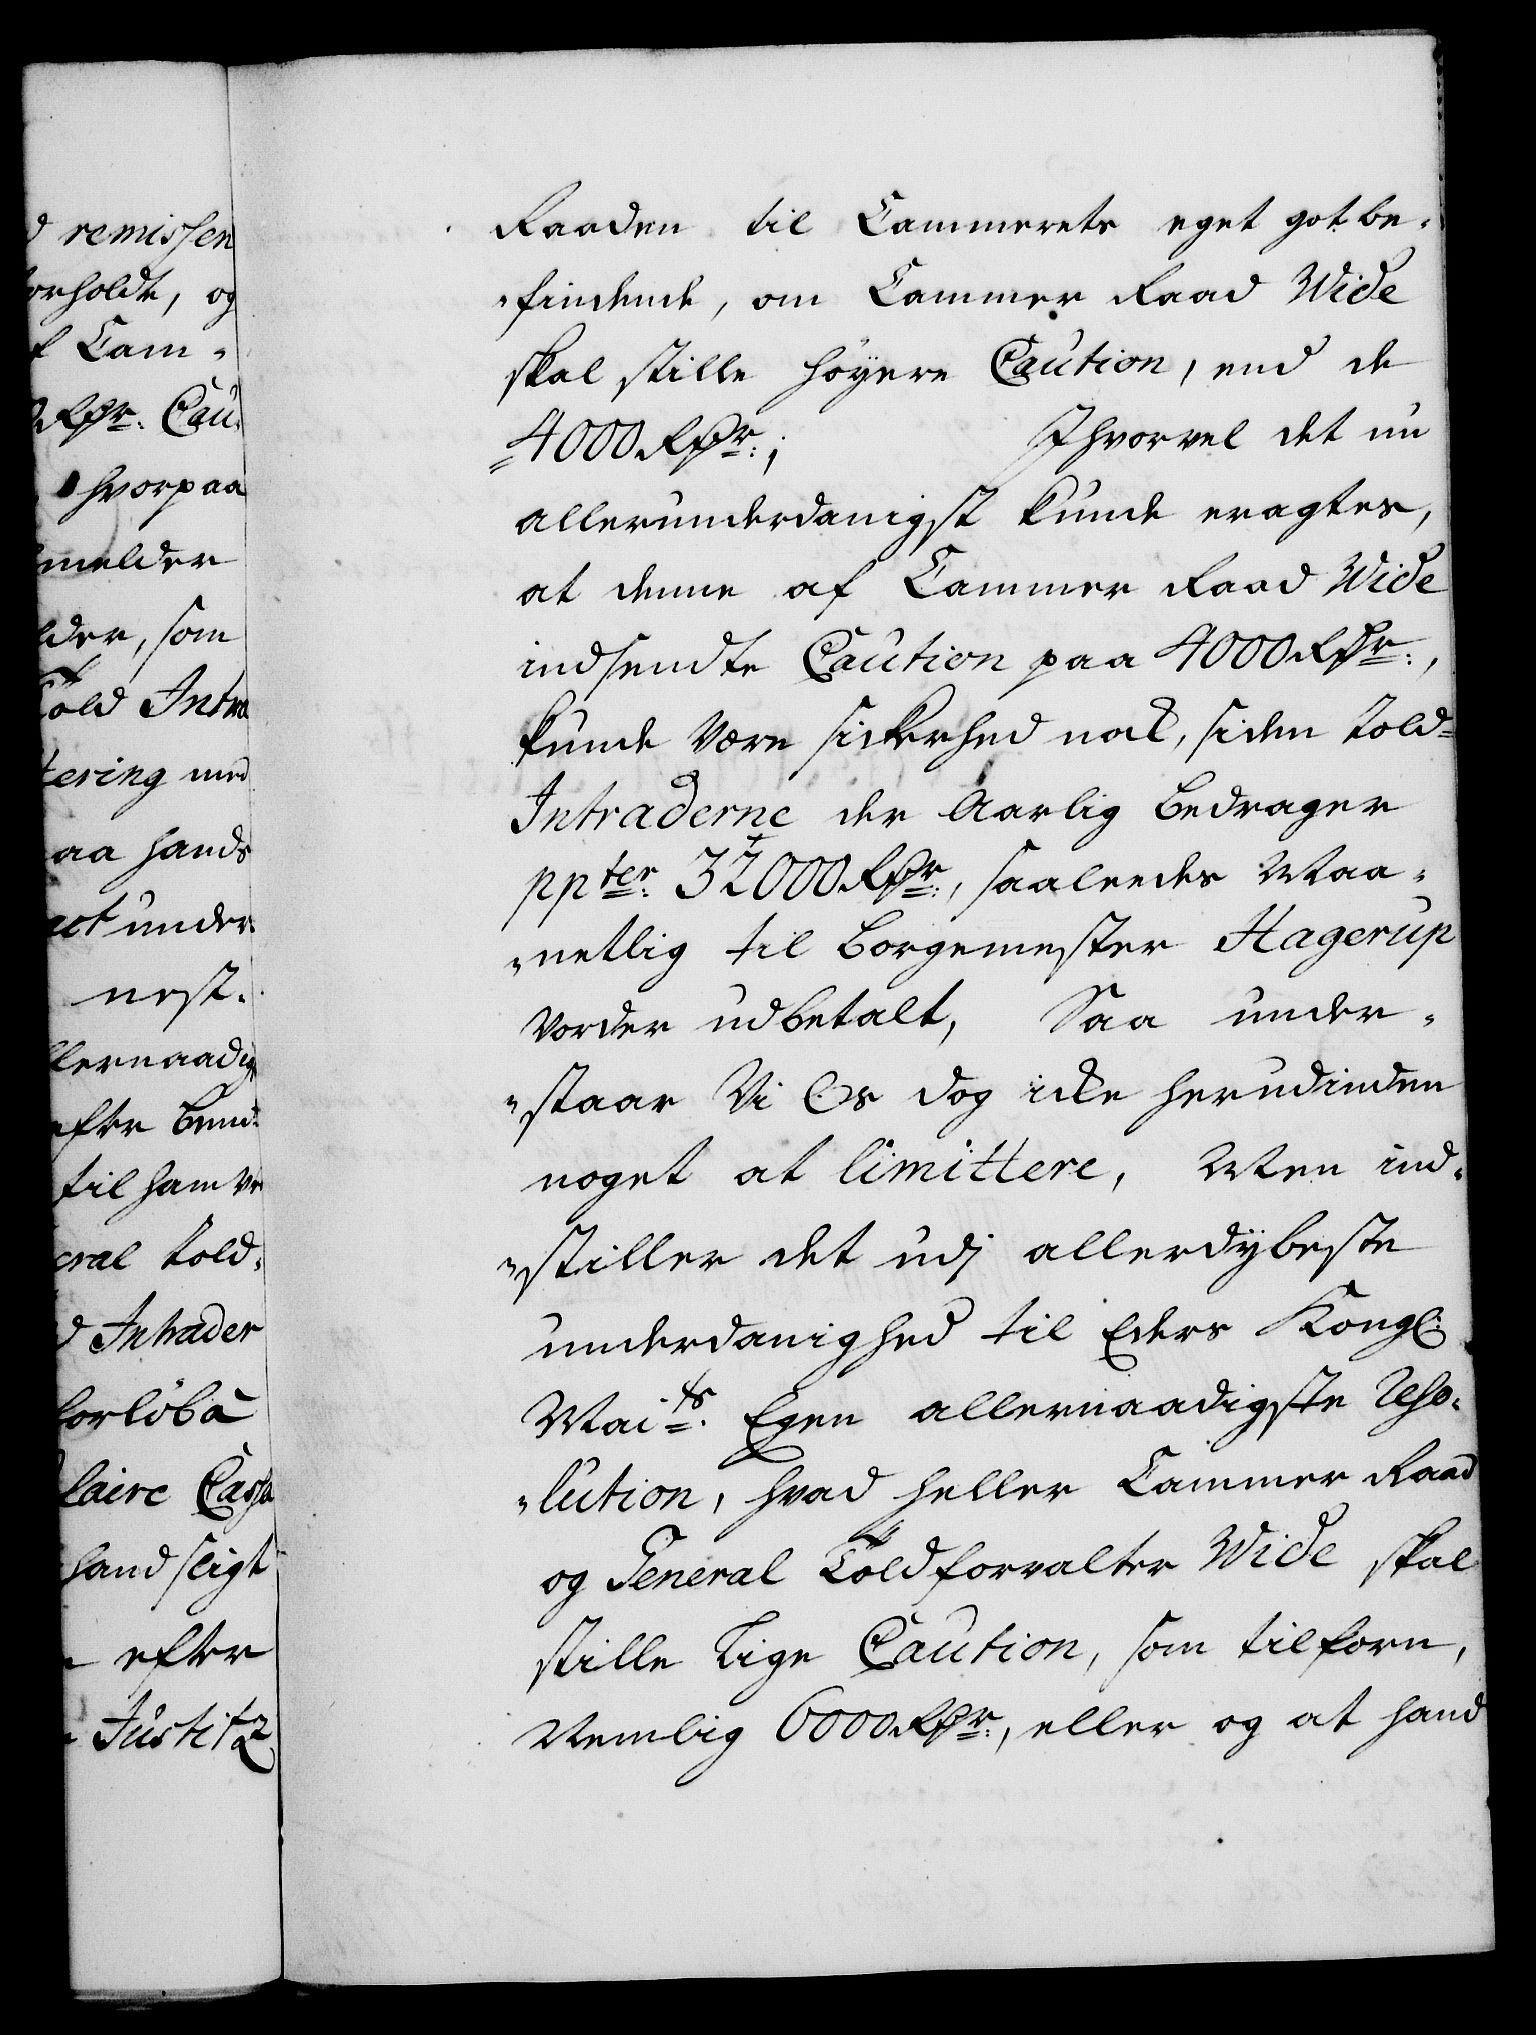 d remissen
forholdt, og
f Cam„
Rdr. Cau„
hvorpaa
melder
lder, som
Told Intra
tering med
aa hands
act under
nest.
llernaadig
efter bem:
til ham ve
eral Told„
d Intrader
forlöb a
laire Cassa
hand seigt
efter
Justitz
Raaden til Cammerets eget gotbe„
„findende, om Cammer Raad Wide
skal stille höyere Caution, end de
4000 Rdr.; Ihvorvel det nu
allerunderdanigst kunde eragtes,
at denne af Cammer Raad Wide
indsendte Caution paa 4000 Rdr.,
kunde være sickerhed nok, siden Told-
Intraderne der Aarlig bedrager
ppter. 32000 Rdr., saaledes Maa„
„netlig til Borgemester Hagerup
vorder udbetalt, Saa under„
„staar Vi Os dog icke herudinden
noget at limittere, Men ind„
„stiller det udj allerdybeste
underdanighed til Eders Kongl.
Maits. Egen allernaadigste Reso„
„lution, hvad heller Cammer Raad
og General Toldforvalter Wide skal
stille Lige Caution, som tilforn,
Nemlig 6000 Rdr., eller og at hand